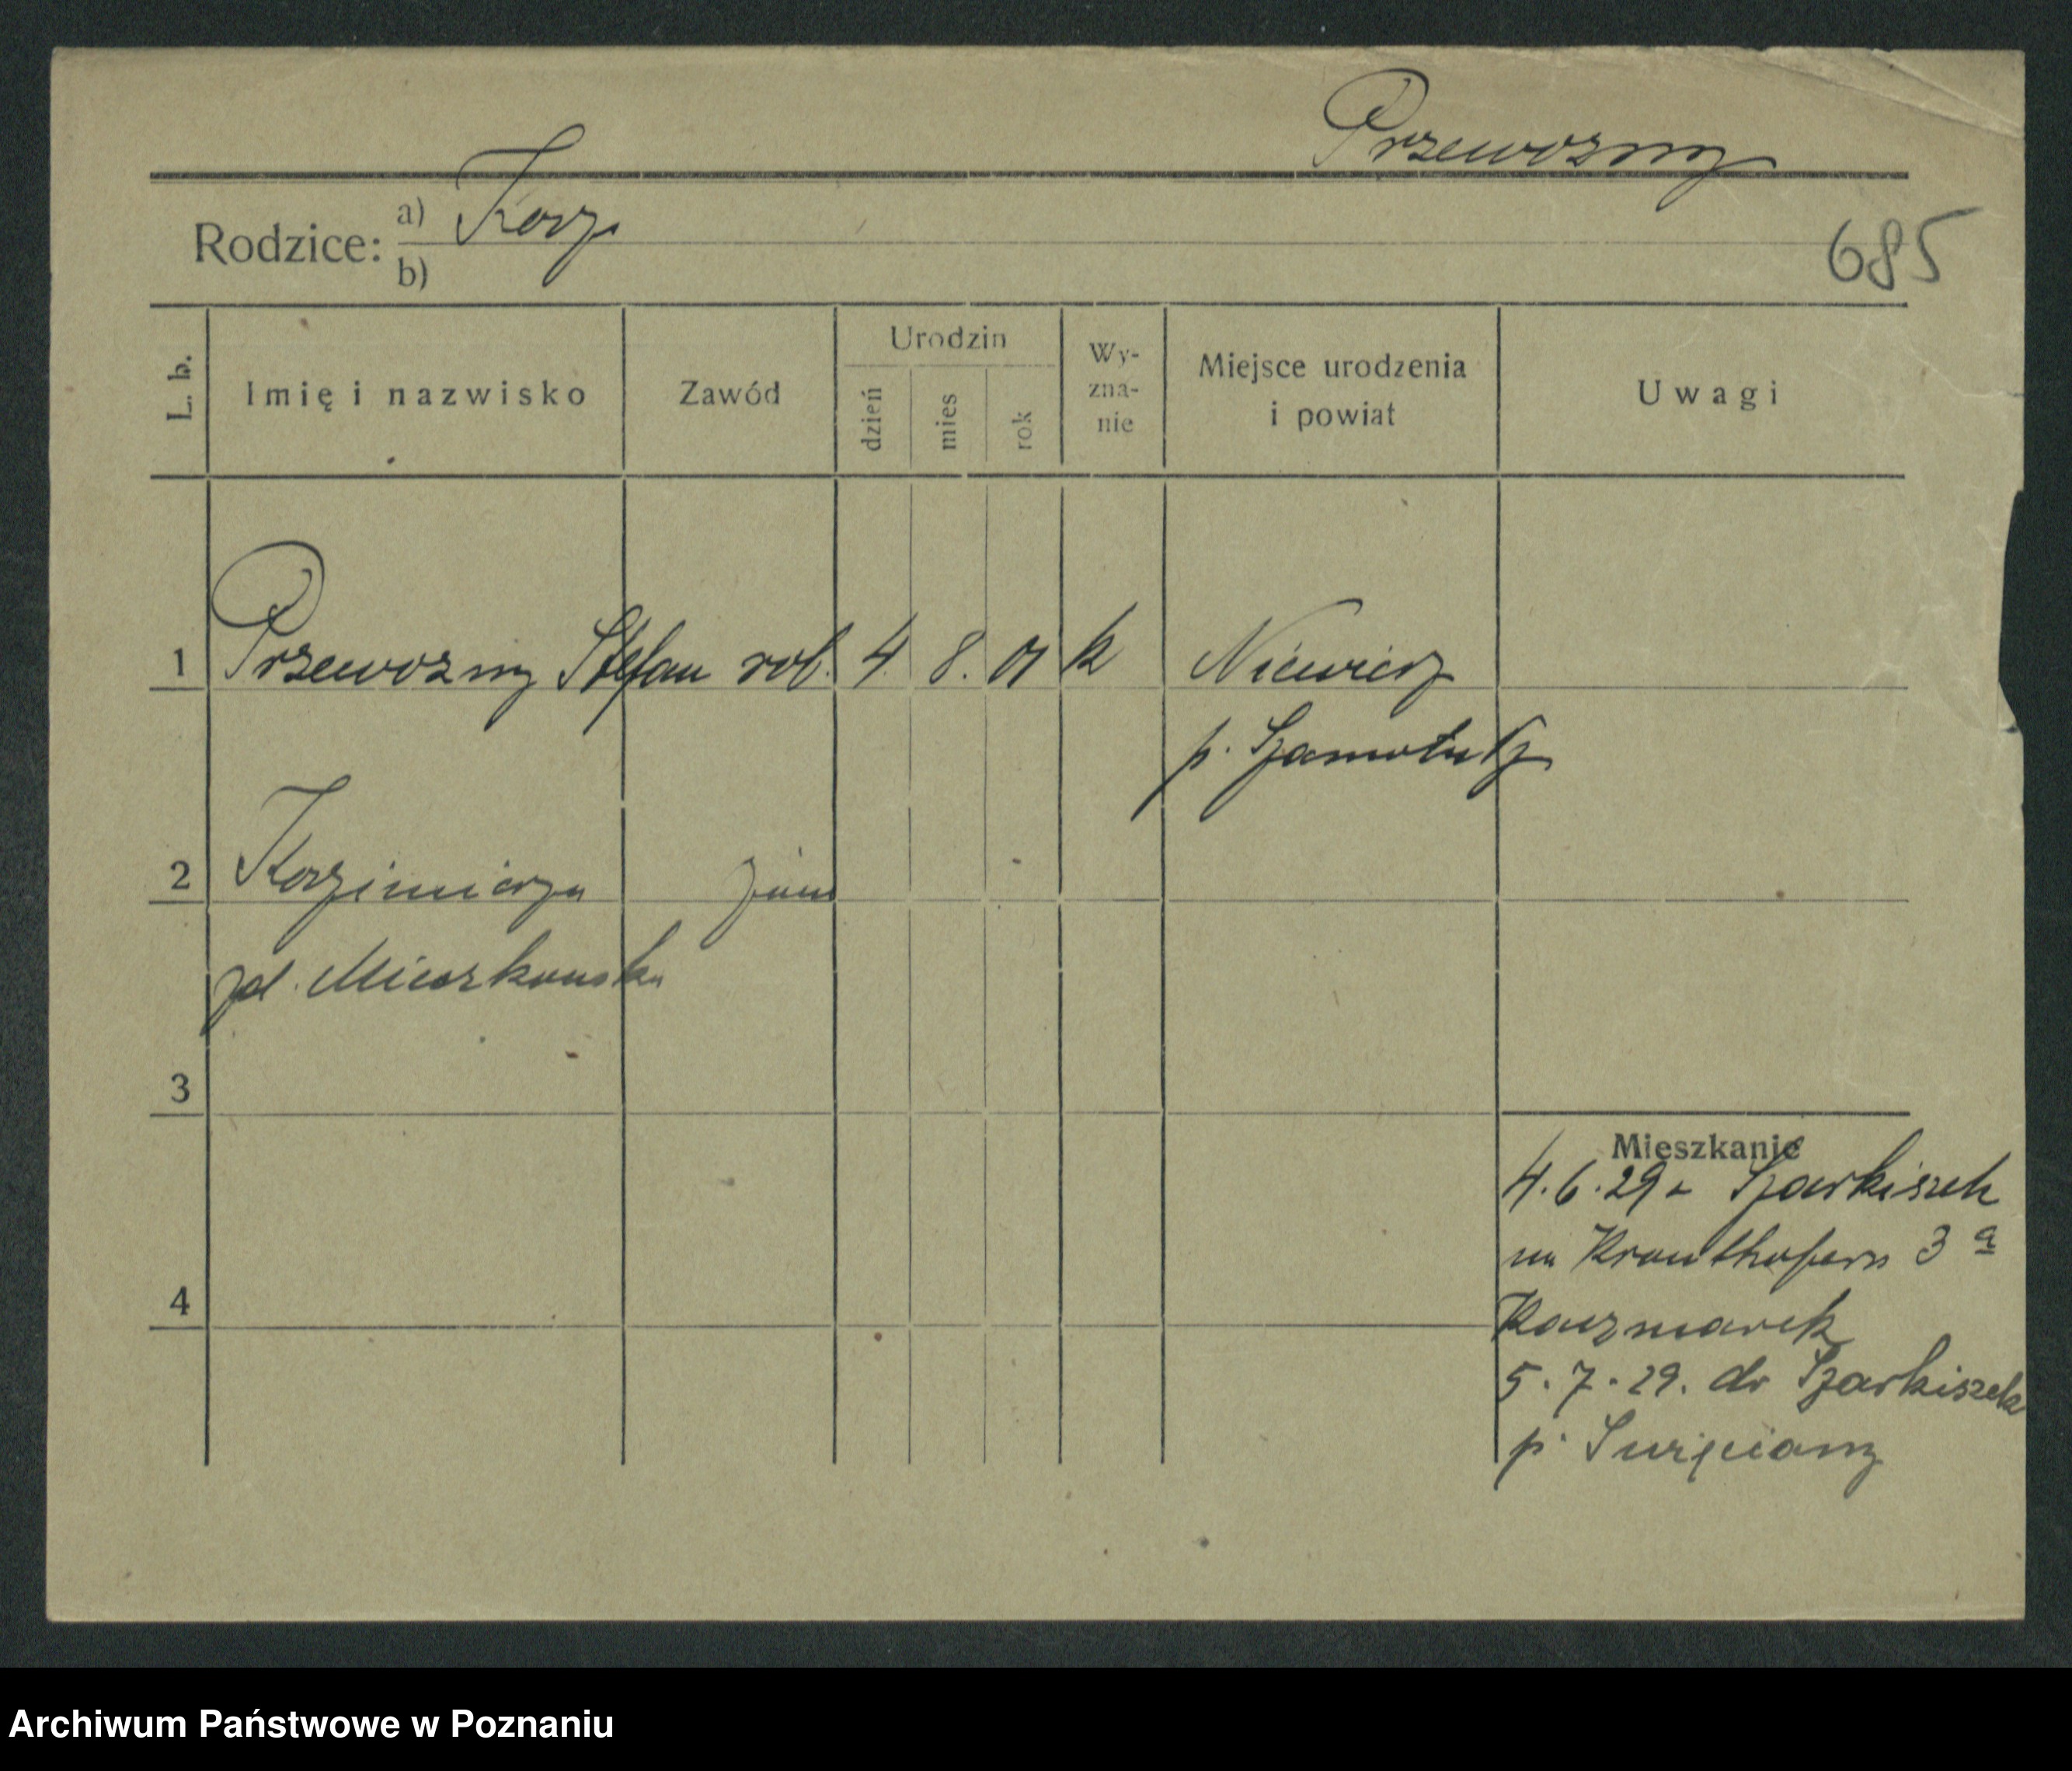 Przewozny
Rodzice: a)
b)
685
L. b.
Imię i nazwisko
Zawód
Urodzin
dzień
mies
rok
Wy-
zna-
nie
Miejsce urodzenia
i powiat
Uwagi
1 Przewozny Stefan rob. 4. 8. 01 k Niewierz
p. Szamotuły
2 Kazimierza
zd. Mieszkowska
3
4
Mieszkanie
4.6.29 z Szarkiszek
na Krauthofera 3 a
Kaczmarek
5.7.29. do Szarkiszek
p. Święciany
Archiwum Państwowe w Poznaniu